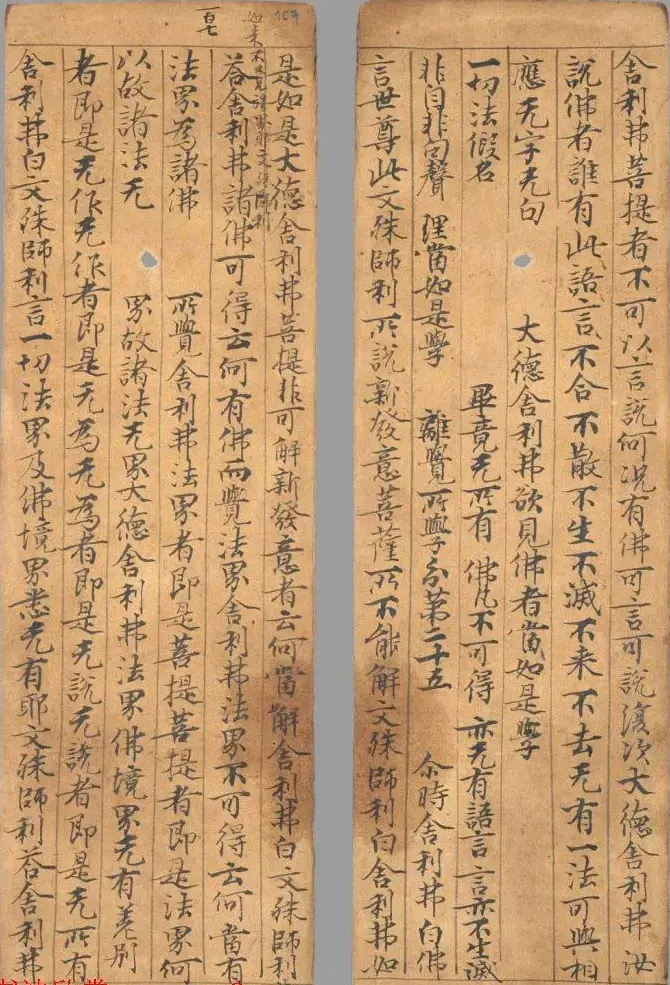 舍利弗菩提者不可以言說何况有佛可言可說復次大德舍利弗汝
說佛者誰有此語言不合不散不生不滅不来不去无有一法可與相
應无字无句 大德舍利弗欲見佛者當如是學
一切法假名 畢竟无所有 佛凡不可得 亦无有語言 言亦不生滅
非自非句聲 理當如是學 離覺所學分第二十五 尒時舍利弗白佛
言世尊此文殊師利所說新發意菩薩所不能解文殊師利白舍利弗如
107
一百七
是如是大德舍利弗菩提非可解新發意者云何當解舍利弗白文殊師利
如来不覺諸 耶文殊師利
荅舍利弗諸佛可得云何有佛而覺法界舍利弗法界不可得云何當有
法界為諸佛 所覺舍利弗法界者即是菩提菩提者即是法界何
以故諸法无 界故諸法无界大德舍利弗法界佛境界无有差別
者即是无作无作者即是无為无為者即是无說无說者即是无所有
舍利弗白文殊師利言一切法界及佛境界悉无有耶文殊師利荅舍利弗